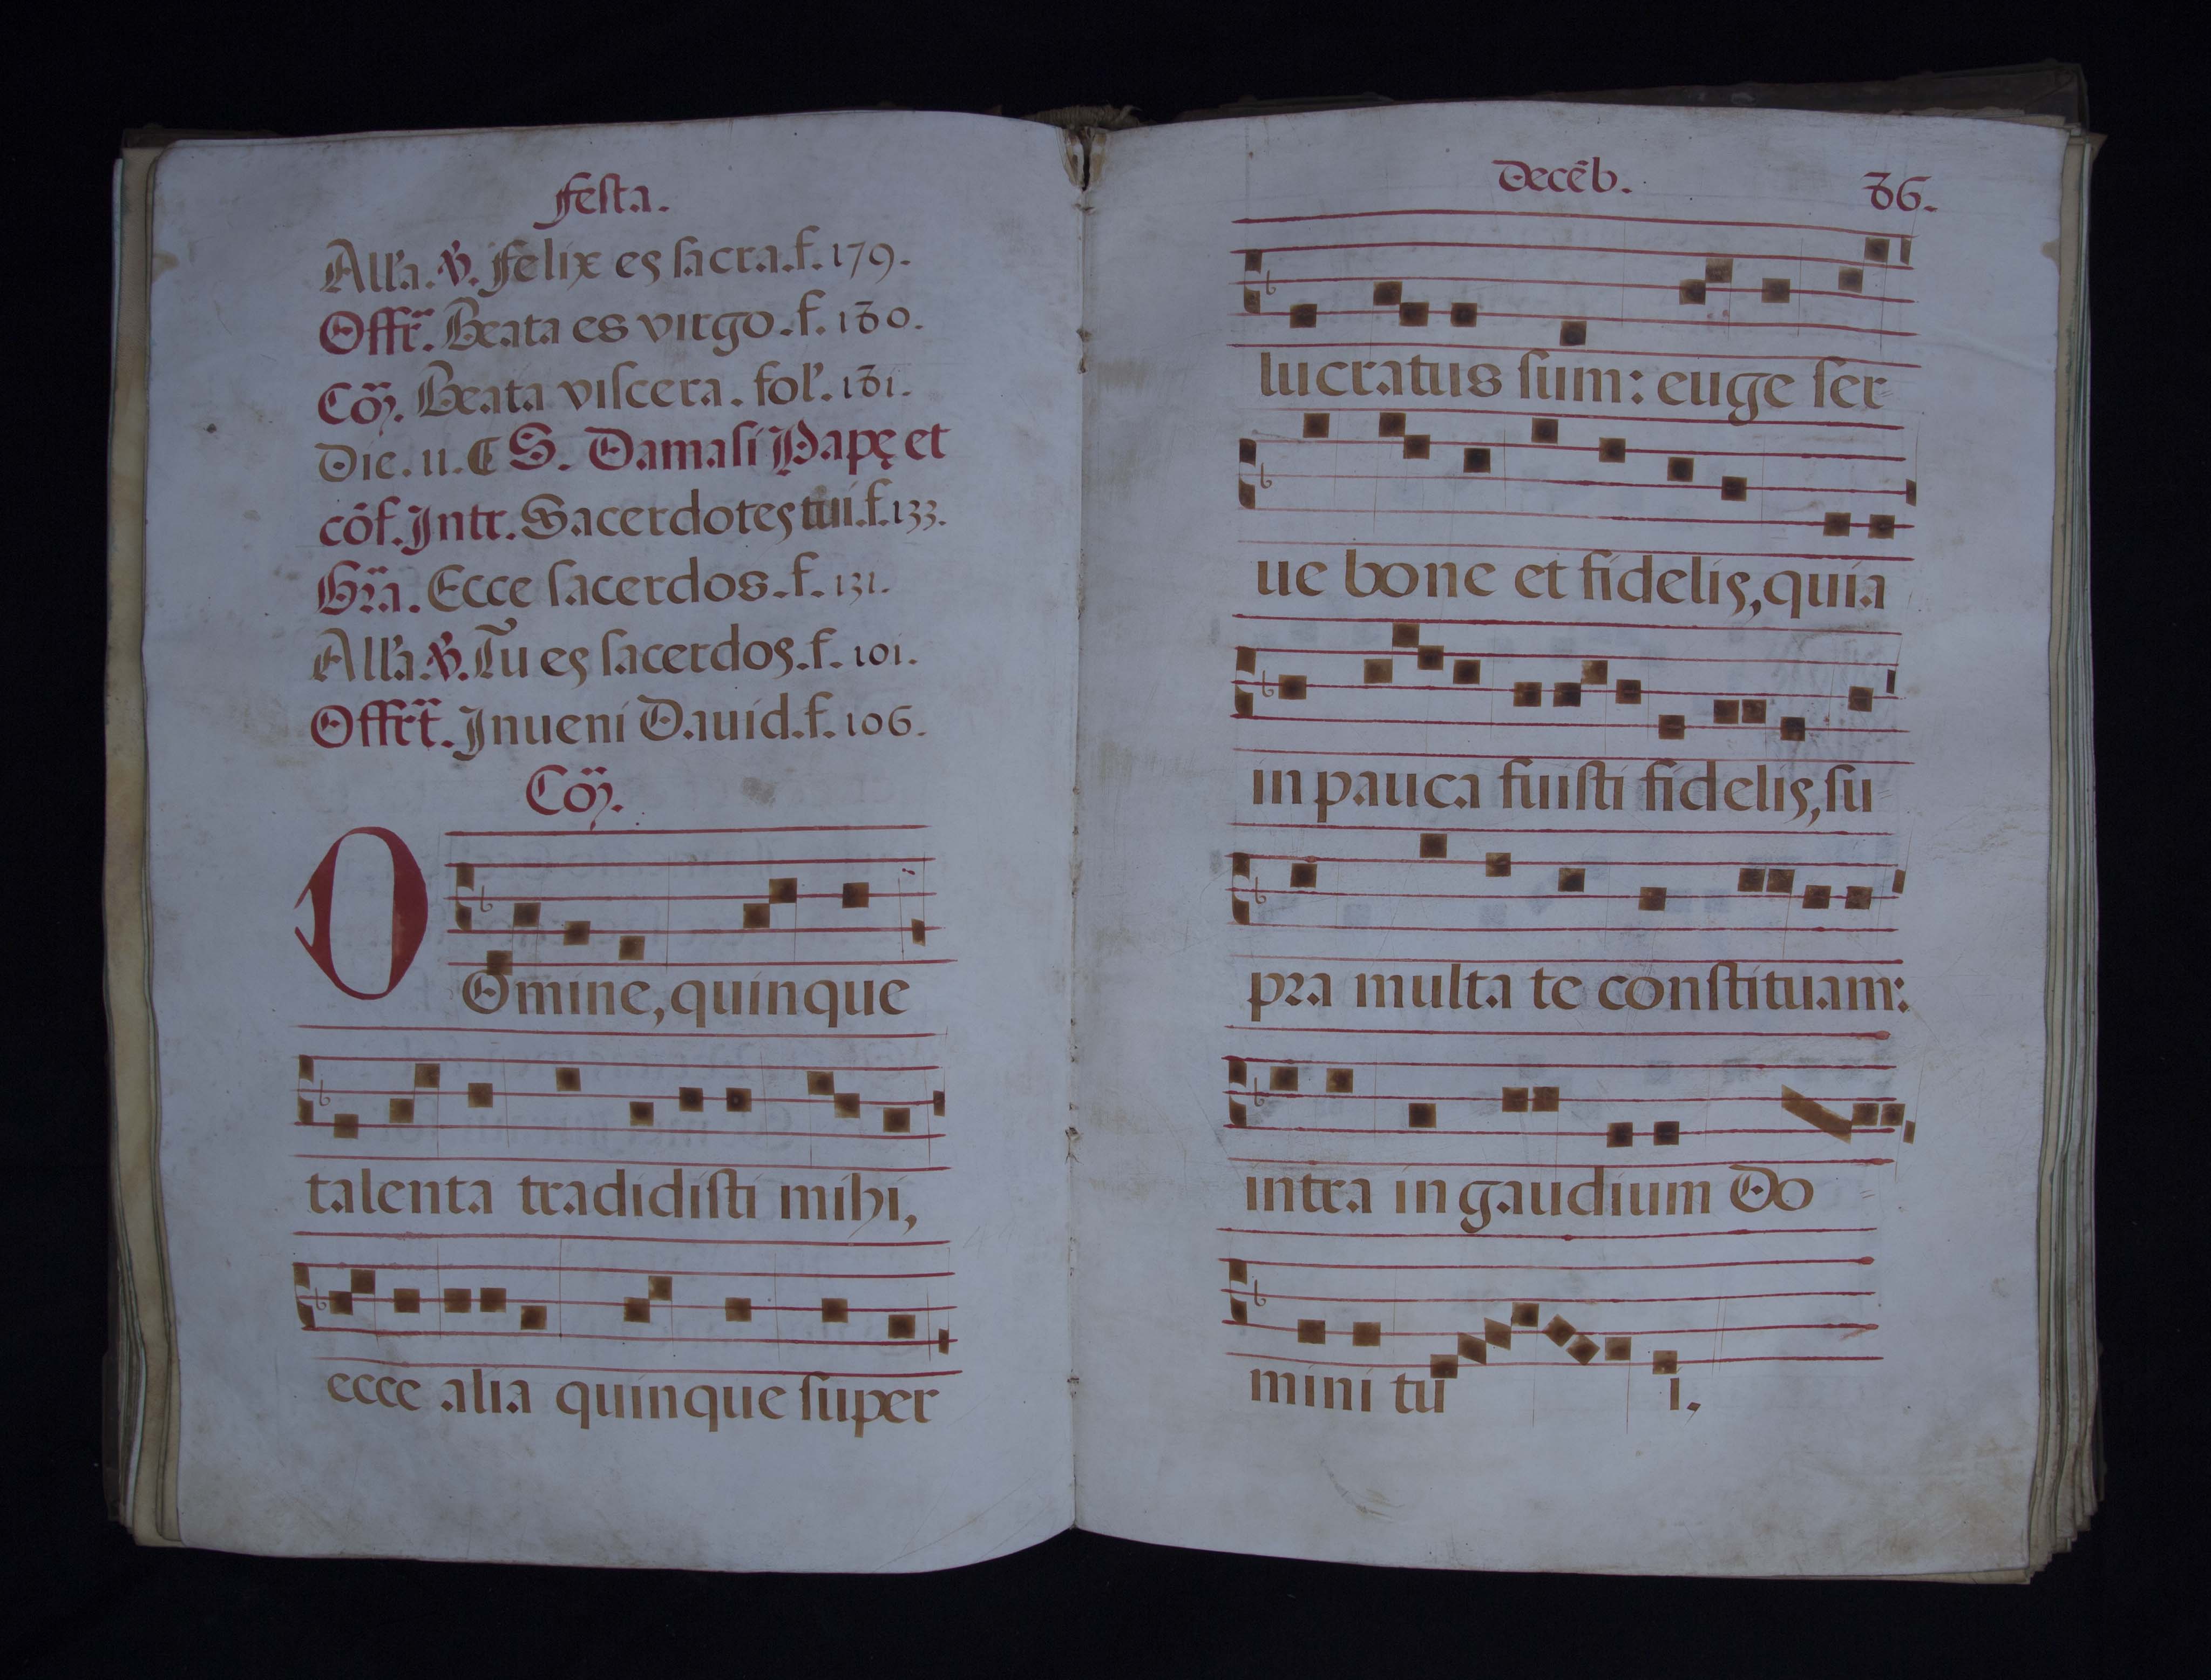 Festa.
All'a. ℣. Felix es sacra. f. 179.
Offr̃. Beata es virgo. f. 180.
Cõ. Beata viscera. fol'. 181.
Die. 11. ¶ S. Damasi Papę et
cõf. Intr. Sacerdotes tui. f. 133.
Gr̃a. Ecce sacerdos. f. 131.
All'a. ℣. Tu es sacerdos. f. 101.
Offr̃t. Inueni Dauid. f. 106.
Cõ.
D
Omine, quinque
talenta tradidisti mihi,
ecce alia quinque super
Decẽb.
86.
lucratus sum: euge ser
ue bone et fidelis, quia
in pauca fuisti fidelis, su
pra multa te constituam:
intra in gaudium Do
mini tu i.